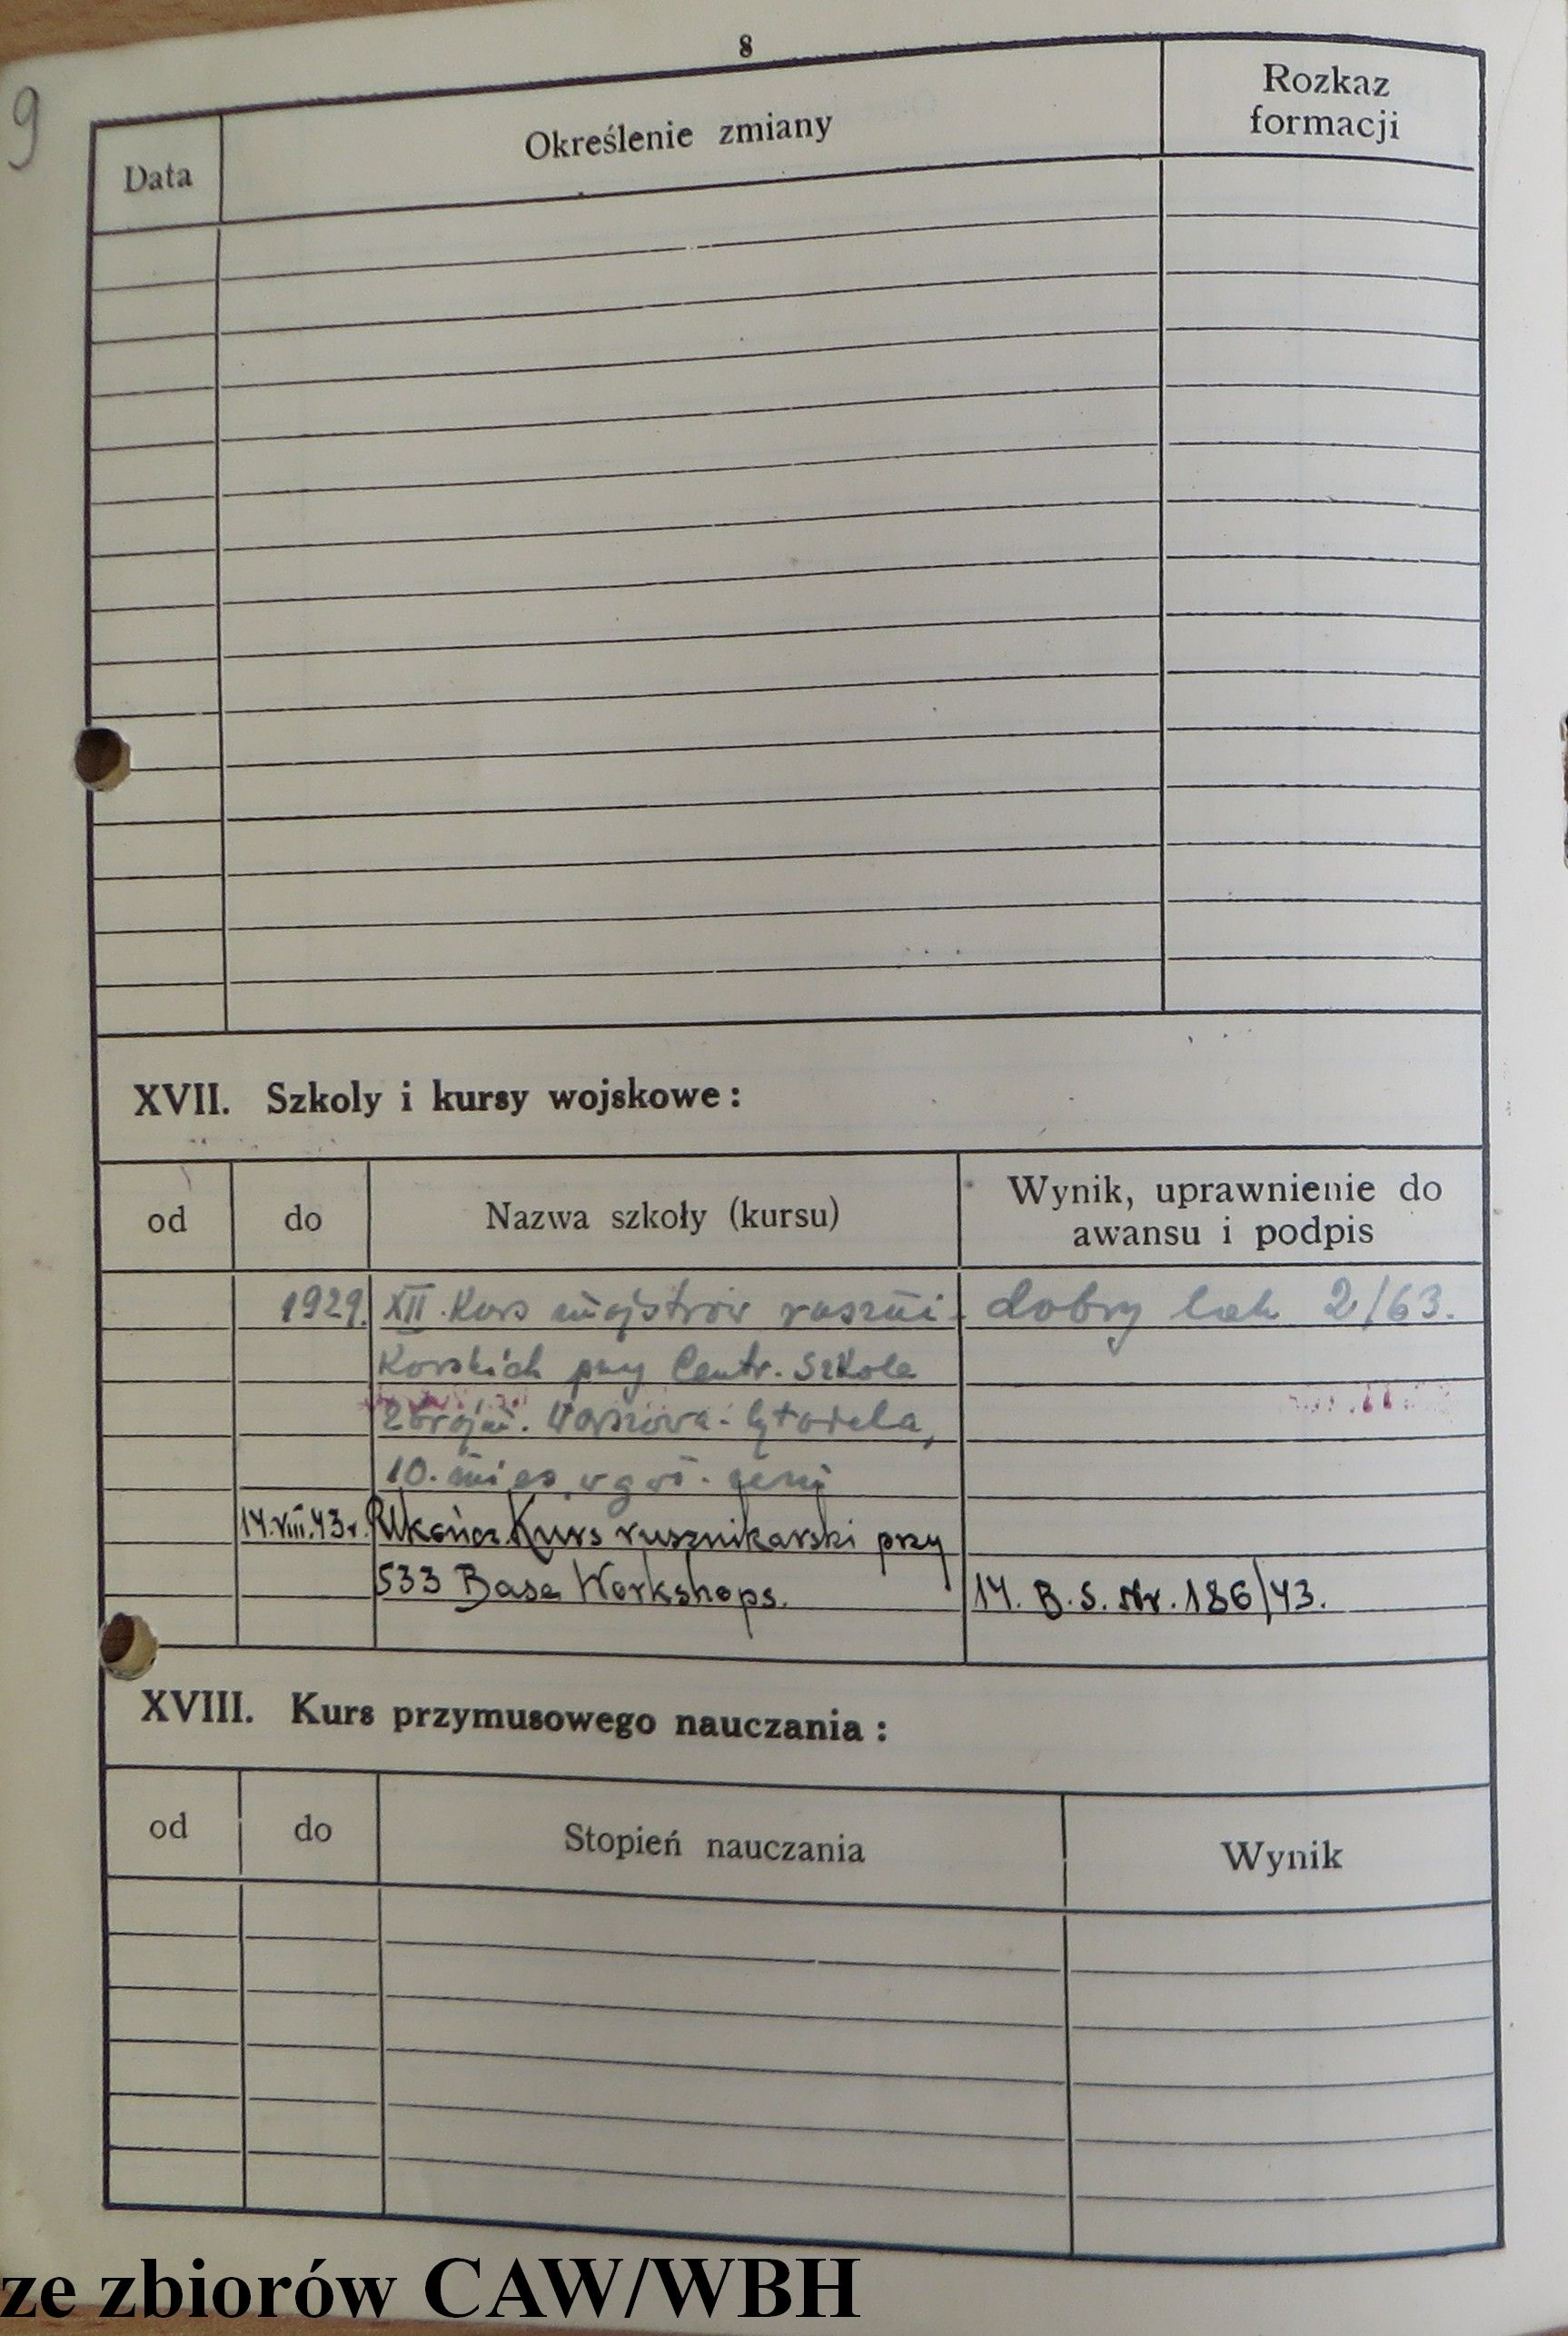 8
9
Data
Określenie zmiany
Rozkaz
formacji
XVII. Szkoly i kursy wojskowe:
od
do
Nazwa szkoły (kursu)
Wynik, uprawnienie do
awansu i podpis
1929. XII. Kurs majstrów ruszni- dobry lok 2/63.
Karskich przy Centr. Szkole
Zbrojm. Warszawa-Cytadela,
10. mies.
14.VIII.43r. Ukończ. Kurs rusznikarski przy
533 Base Workshops. 14. B. S. Nr. 186/43.
XVIII. Kurs przymusowego nauczania:
od
do
Stopień nauczania
Wynik
ze zbiorów CAW/WBH